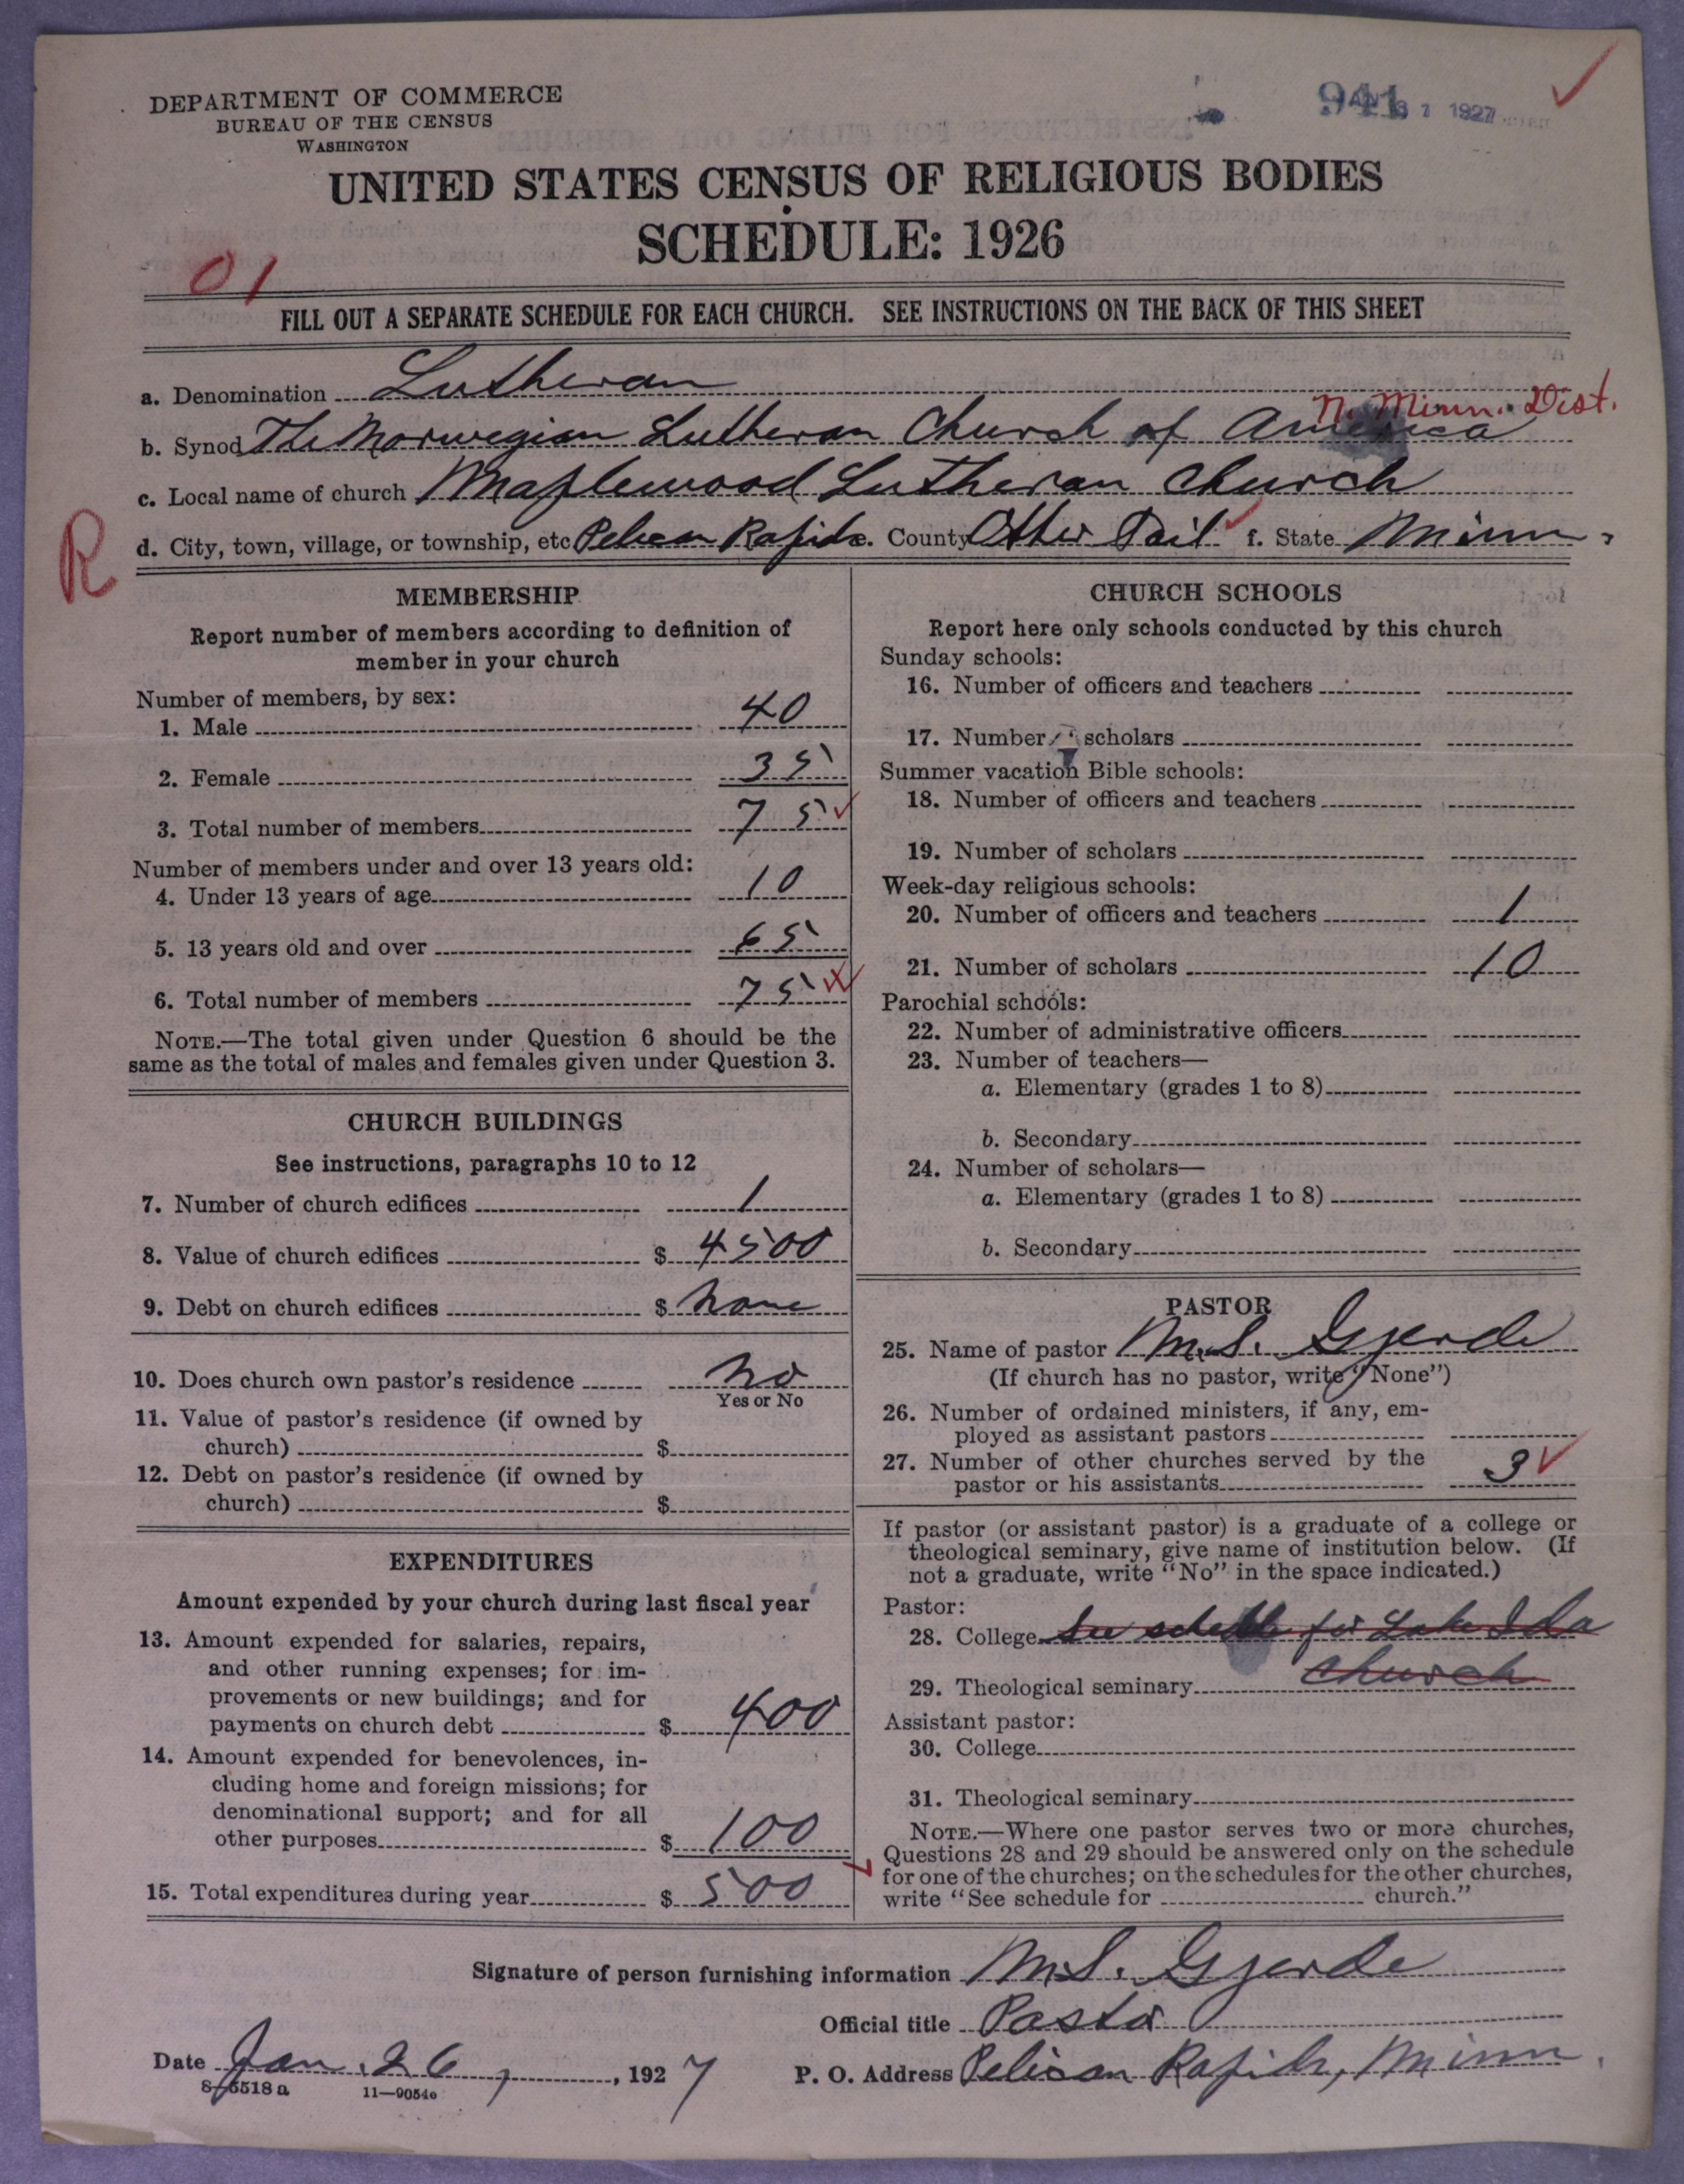 DEPARTMENT OF COMMERCE
BUREAU OF THE CENSUS
WASHINGTON
941 31 1927
UNITED STATES CENSUS OF RELIGIOUS BODIES
SCHEDULE: 1926
01
FILL OUT A SEPARATE SCHEDULE FOR EACH CHURCH. SEE INSTRUCTIONS ON THE BACK OF THIS SHEET
a. Denomination Lutheran
N. Minn. Dist.
b. Synod The Norwegian Lutheran Church of America
c. Local name of church Maplewood Lutheran Church
R
d. City, town, village, or township, etc Pelican Rapids e. County Otter Tail f. State Minn.
MEMBERSHIP
Report number of members according to definition of
member in your church
Number of members, by sex:
1. Male 40
2. Female 35
3. Total number of members 75
Number of members under and over 13 years old:
4. Under 13 years of age 10
5. 13 years old and over 65
6. Total number of members 75
NOTE.—The total given under Question 6 should be the
same as the total of males and females given under Question 3.
CHURCH BUILDINGS
See instructions, paragraphs 10 to 12
7. Number of church edifices 1
8. Value of church edifices $ 4500
9. Debt on church edifices $ None
10. Does church own pastor's residence No
Yes or No
11. Value of pastor's residence (if owned by
church) $
12. Debt on pastor's residence (if owned by
church) $
EXPENDITURES
Amount expended by your church during last fiscal year
13. Amount expended for salaries, repairs,
and other running expenses; for im-
provements or new buildings; and for
payments on church debt $ 400
14. Amount expended for benevolences, in-
cluding home and foreign missions; for
denominational support; and for all
other purposes $ 100
15. Total expenditures during year $ 500
CHURCH SCHOOLS
Report here only schools conducted by this church
Sunday schools:
16. Number of officers and teachers
17. Number of scholars
Summer vacation Bible schools:
18. Number of officers and teachers
19. Number of scholars
Week-day religious schools:
20. Number of officers and teachers 1
21. Number of scholars 10
Parochial schools:
22. Number of administrative officers
23. Number of teachers—
a. Elementary (grades 1 to 8)
b. Secondary
24. Number of scholars—
a. Elementary (grades 1 to 8)
b. Secondary
PASTOR
25. Name of pastor M.S. Gjerde
(If church has no pastor, write "None")
26. Number of ordained ministers, if any, em-
ployed as assistant pastors
27. Number of other churches served by the
pastor or his assistants 3
If pastor (or assistant pastor) is a graduate of a college or
theological seminary, give name of institution below. (If
not a graduate, write "No" in the space indicated.)
Pastor:
28. College See schedule for Lake Ida
29. Theological seminary Church
Assistant pastor:
30. College
31. Theological seminary
NOTE.—Where one pastor serves two or more churches,
Questions 28 and 29 should be answered only on the schedule
for one of the churches; on the schedules for the other churches,
write "See schedule for church."
Signature of person furnishing information M.S. Gjerde
Official title Pastor
Date Jan. 26, 1927 P. O. Address Pelican Rapids, Minn.
8-5518 a 11—9054e